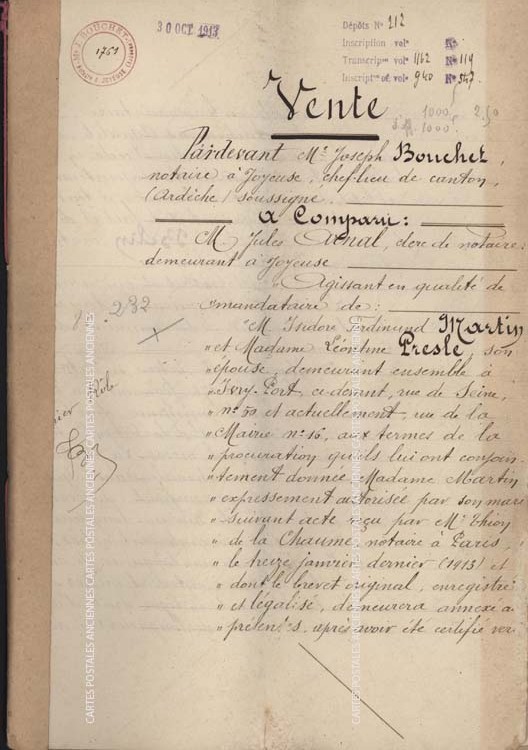 Me J. BOUCHET
1751
30 OCT 1913
Dépots No 212
Inscription vol No
Transcripon vol 1162 No 119
Inscripton of. vol 940 No 547
1000
1000
2.50
Vente
Pardevant Me Joseph Bouchet,
notaire à Joyeuse, chef-lieu de canton,
(Ardèche) soussigné.
A Comparu:
M. Jules Arnal, clerc de notaire,
demeurant à Joyeuse
" Agissant en qualité de
" mandataire de:
232
" M. Isidore Ferdinand Martin
" et Madame Léontine Presle, son
" épouse, demeurant ensemble à
" Ivry-Port, ci-devant, rue de Seine,
" no 50 et actuellement, rue de la
" Mairie no 16, aux termes de la
" procuration qu'ils lui ont conjoin-
" tement donnée, Madame Martin
" expressement autorisée par son mari
" suivant acte reçu par Me Thion
" de la Chaume, notaire à Paris,
" le treize janvier dernier (1913) et
" dont le brevet original, enregistré
" et légalisé, demeurera annexé a
" présentes, après avoir été certifié ver
CARTES POSTALES ANCIENNES CARTES POSTALES ANCIENNES CARTES POSTALES ANCIENNES
CARTES POSTALES ANCIENNES CARTES POSTALES ANCIENNES CARTES POSTALES ANCIENNES